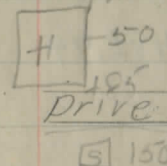 H -50
105
Drive
S 15